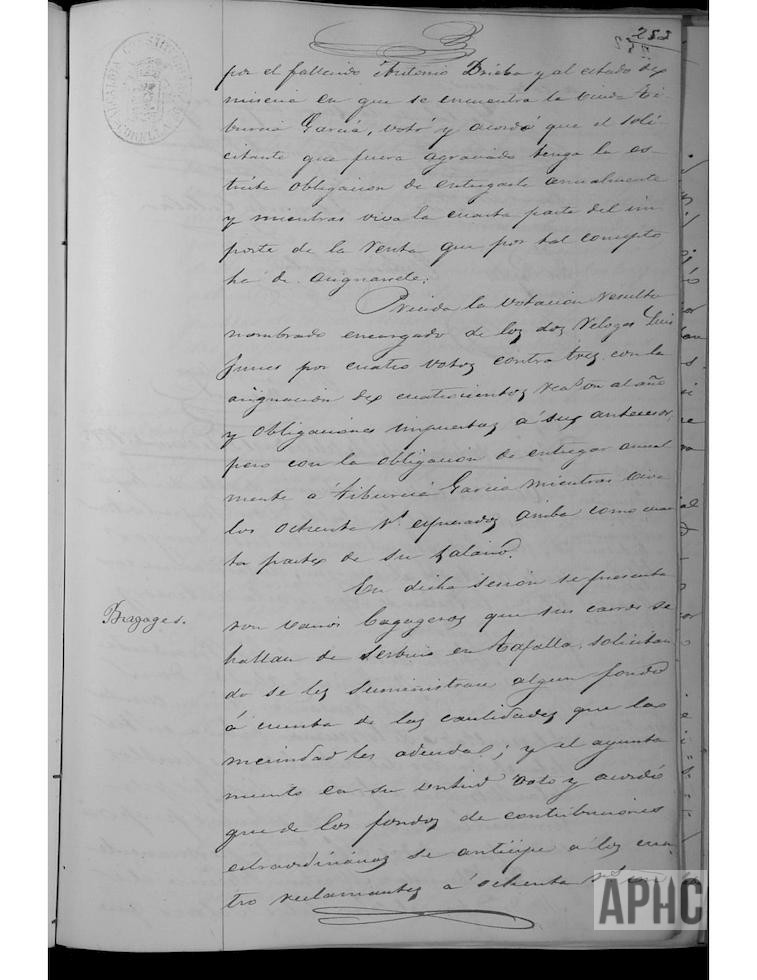 222
por el fallecido Antonio Brieba y al estado de
miseria en que se encuentra la viuda Ti-
burcia García, votó y acordó que el soli-
citante que fuera agraciado tenga la es-
tricta obligacion de entregarle anualmente
y mientras viva la cuarta parte del im
porte de la renta que por tal concepto
ha de asignarsele.
la votacion resulta
nombrado encargado de los dos Reloges Luis
por cuatro votos contra tres, con la
asignacion de cuatrocientos rea.s von al año
y obligaciones impuestas á sus antecesor,
pero con la obligacion de entregar anual
mente á Tiburcia Garcia mientras viva
los ochenta r.s espresados arriba como cuar
ta parte de su salario.
En dicha sesion se presenta
Bagages.
ron varios bagageros que sus carros se
hallan de servicio en Tafalla, solicitan
do se les suministrase algun fondo
á cuenta de las cantidades que la
merindad les adeuda; y el ayunta
miento en su virtud votó y acordó
que de los fondos de contribuciones
extraordinarias se anticipe á los cua
tro reclamantes á ochenta r.s
APHC